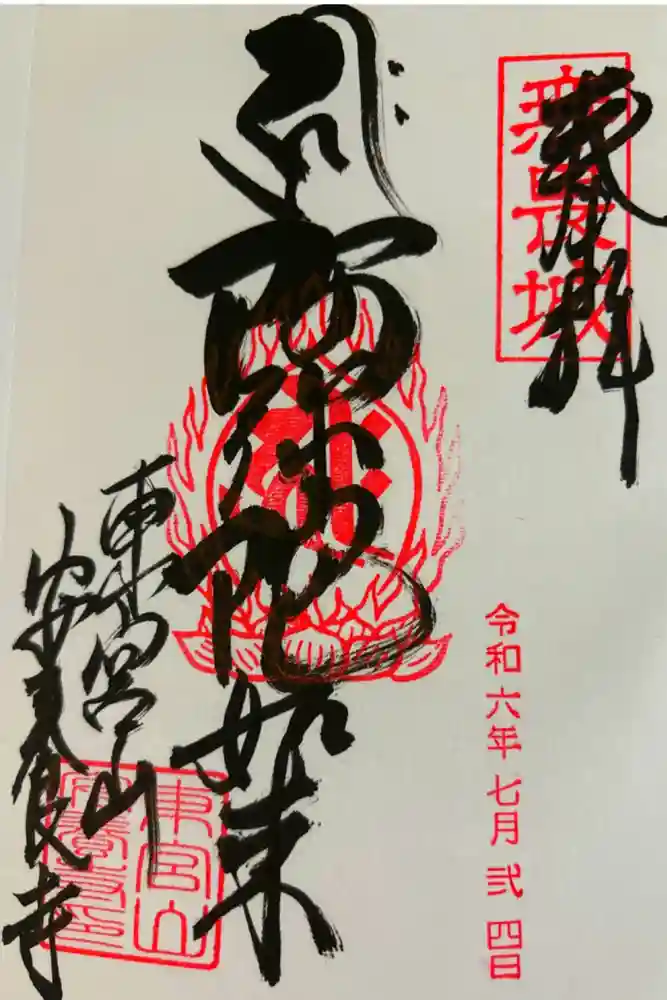 奉拝
令和六年七月弐四日
阿弥陀如来
東宮山
安養寺
東宮山